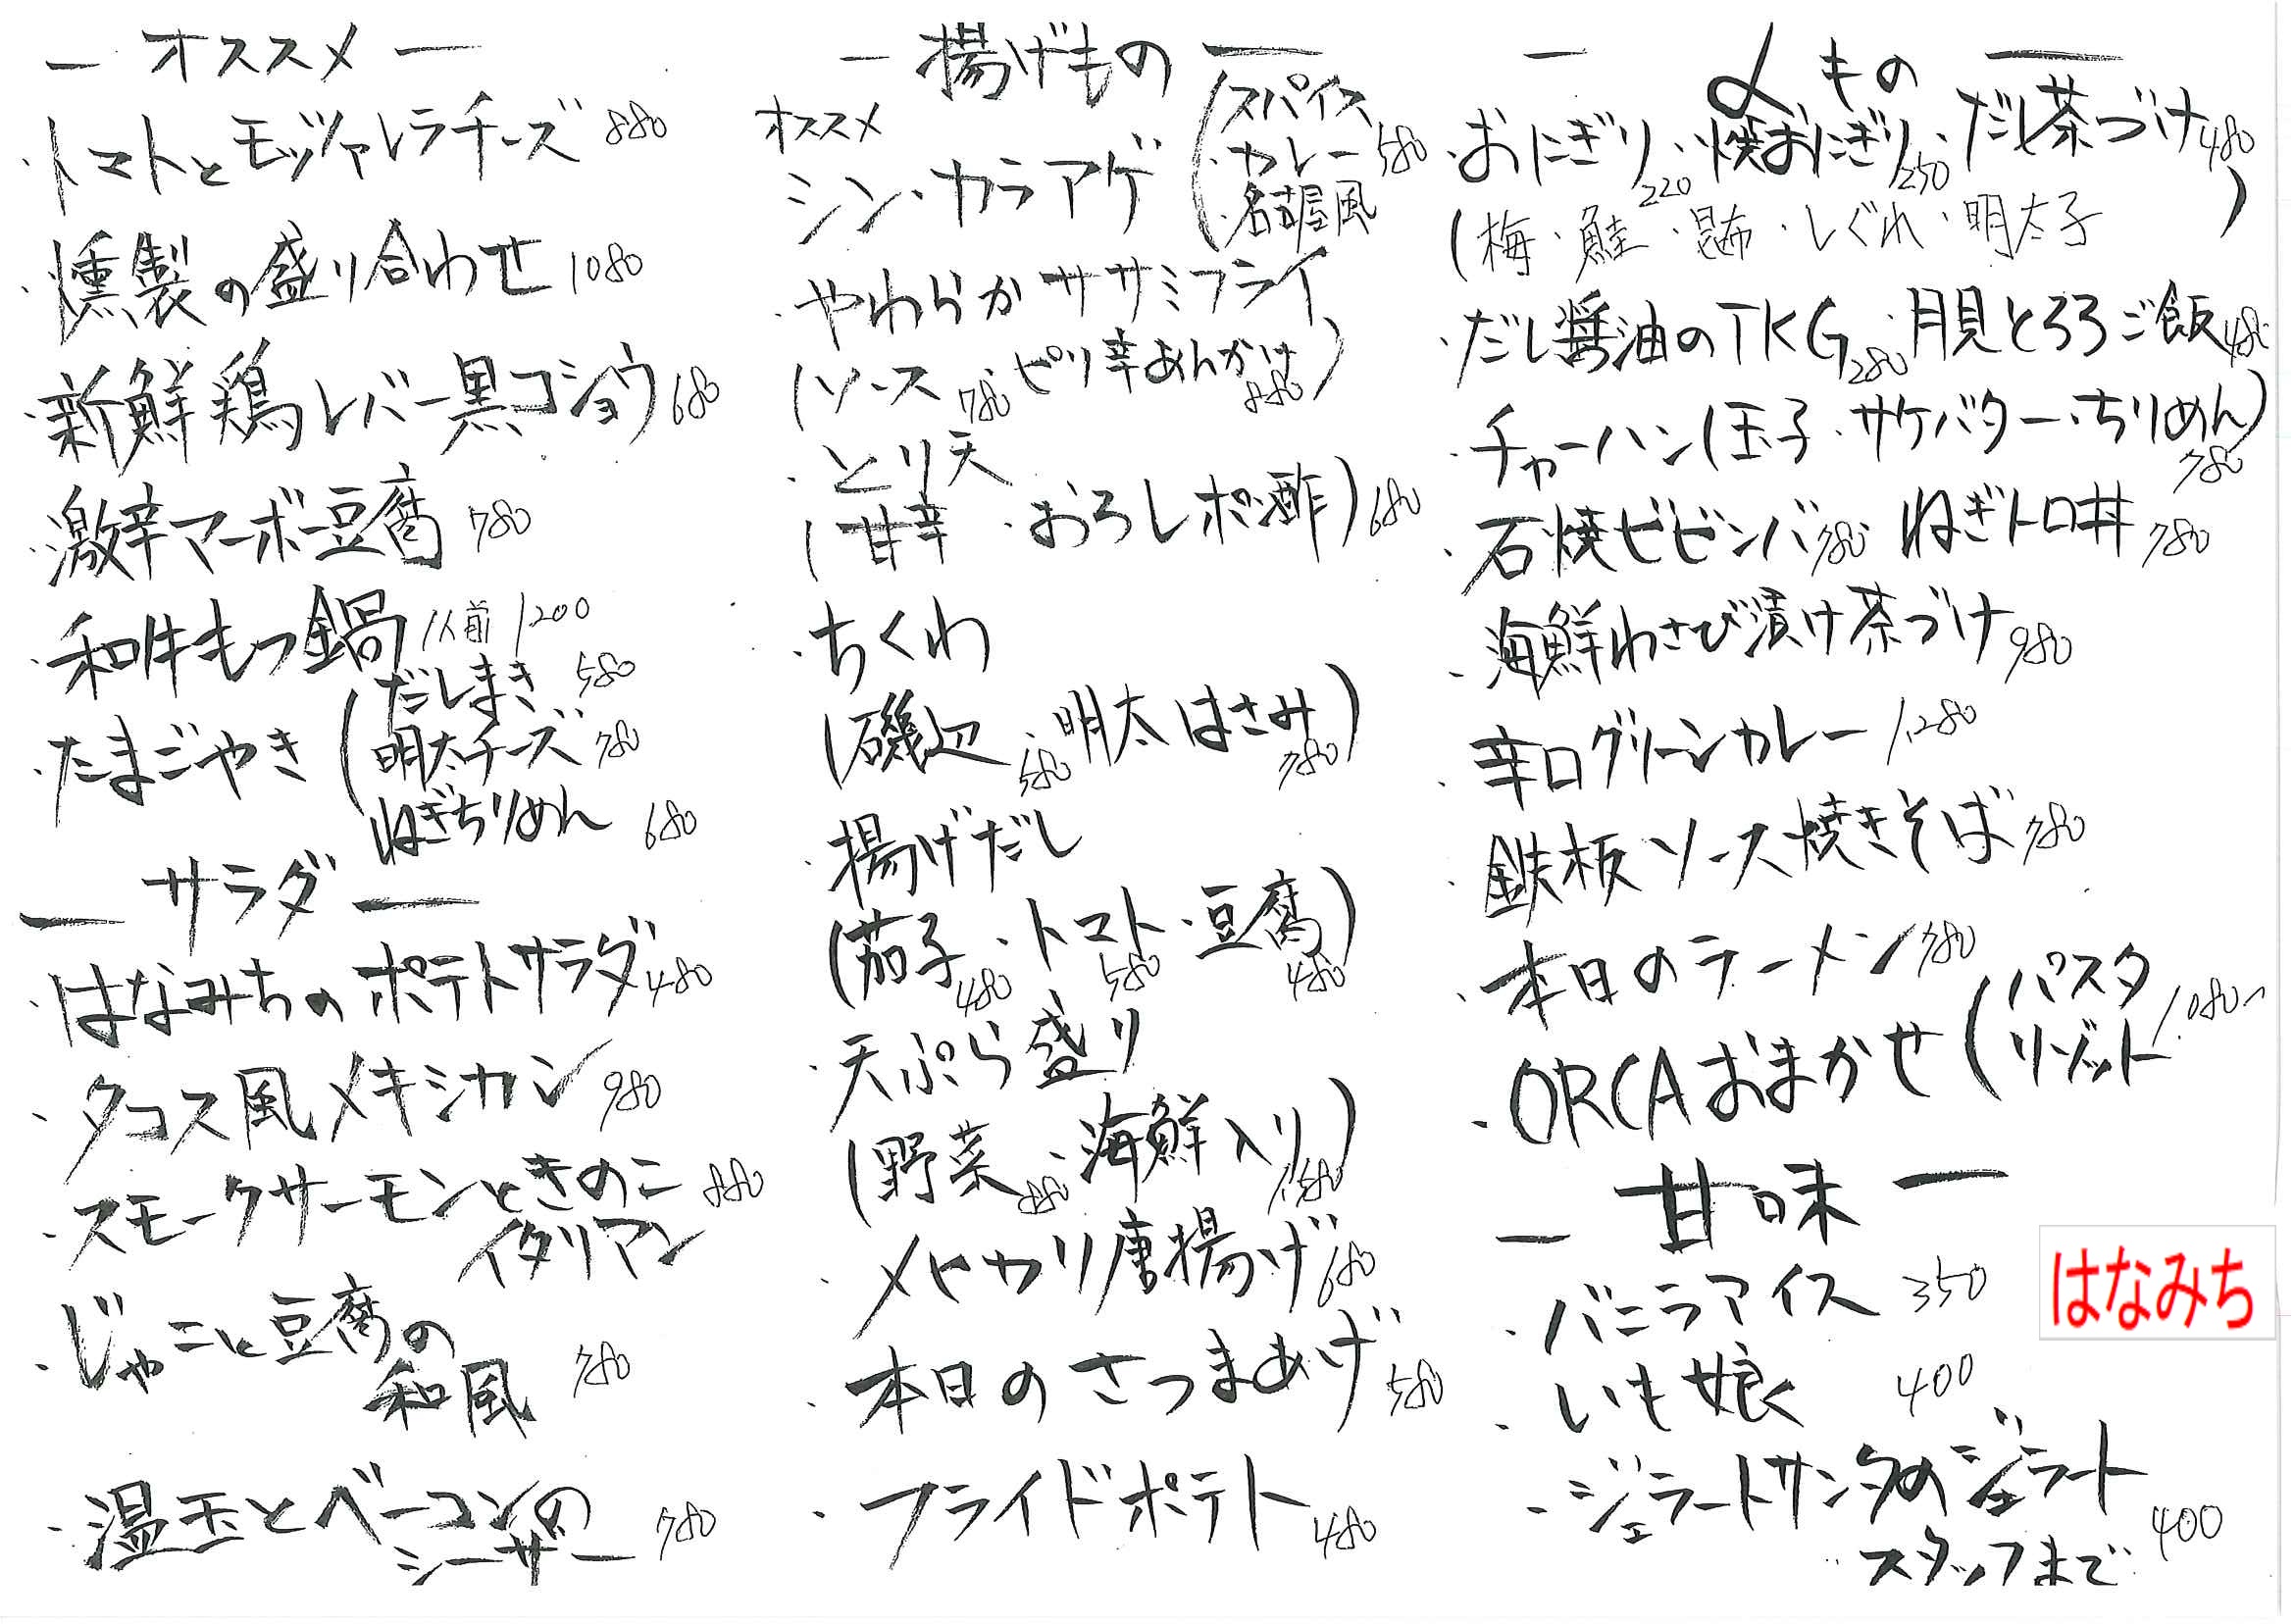 ― オススメ ―
・トマトとモッツァレラチーズ 880
・燻製の盛り合わせ 1080
・新鮮鶏レバー黒コショウ 680
・激辛マーボー豆腐 780
・和牛もつ鍋 1人前 1200
・たまごやき（だしまき 580
明太チーズ 780
ねぎちりめん 680
― サラダ ―
・はなみちのポテトサラダ 480
・タコス風メキシカン 980
・スモークサーモンときのこ 880
イタリアン
・じゃこと豆腐の
和風 780
・温玉とベーコンの
シーザー 780
― 揚げもの ―
オススメ
シン・カラアゲ（スパイス
・カレー 580
・名古屋風
・やわらかササミフライ
（ソース 780・ピリ辛あんかけ 880）
・とり天
（甘辛・おろしポン酢）680
・ちくわ
（磯辺 580・明太はさみ 780）
・揚げだし
（茄子 480・トマト 580・豆腐 480）
・天ぷら盛り
（野菜 880・海鮮入り 1,580）
・メヒカリ唐揚げ 680
・本日のさつまあげ 580
・フライドポテト 480
― 〆もの ―
・おにぎり 220・焼おにぎり 250・だし茶づけ 480
（梅・鮭・昆布・しぐれ・明太子）
・だし醤油のTKG 280・月見とろろご飯 480
・チャーハン（玉子・サケバター・ちりめん）780
・石焼ビビンバ 780・ねぎトロ丼 780
・海鮮わさび漬け茶づけ 980
・辛口グリーンカレー 1,280
・鉄板ソース焼きそば 780
・本日のラーメン 780
・ORCAおまかせ（パスタ
リゾット 1,080〜
― 甘味 ―
・バニラアイス 350
・いも娘く 400
・ジェラートサンタのジェラート 400
スタッフまで
はなみち